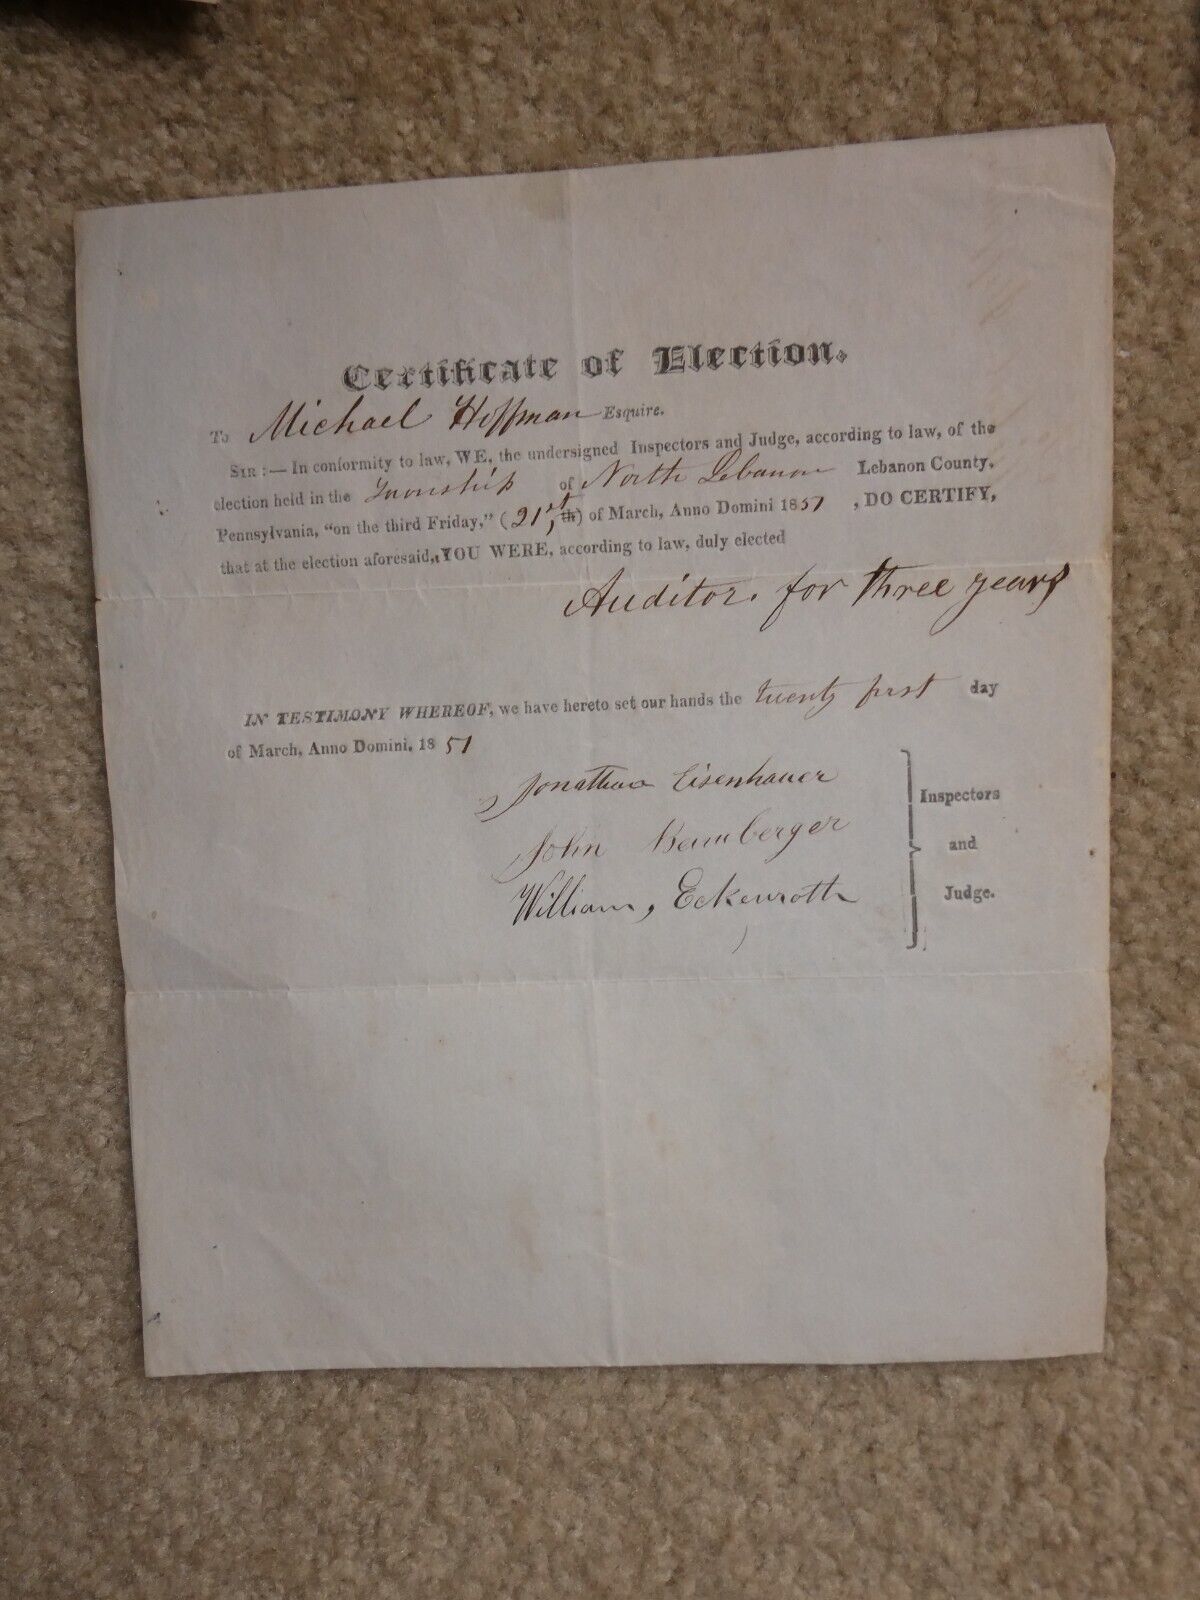 Certificate of Election.
To Michael Hoffman Esquire.
SIR:— In conformity to law, WE, the undersigned Inspectors and Judge, according to law, of the
election held in the Township of North Lebanon Lebanon County,
Pennsylvania, "on the third Friday," (21st, th) of March, Anno Domini 1851, DO CERTIFY,
that at the election aforesaid, YOU WERE, according to law, duly elected
Auditor. for three years
IN TESTIMONY WHEREOF, we have hereto set our hands the twenty first day
of March, Anno Domini, 1851
Jonathan Eisenhauer
John Bamberger
William, Eckenroth
Inspectors
and
Judge.